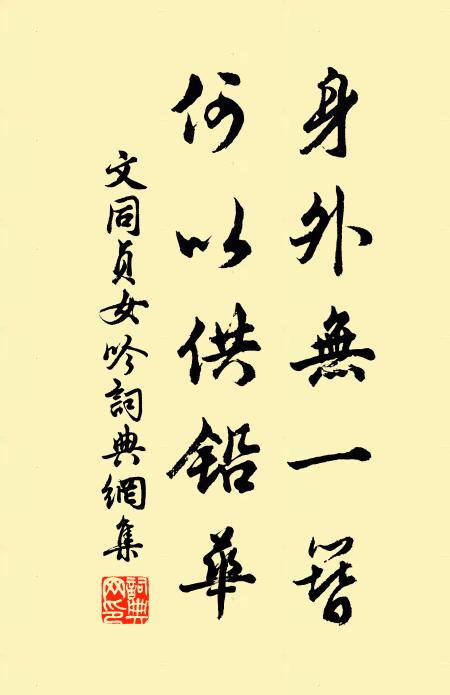 身外無一簪
何以供鉛華
文同貞女吟詞典網集
詞典網印